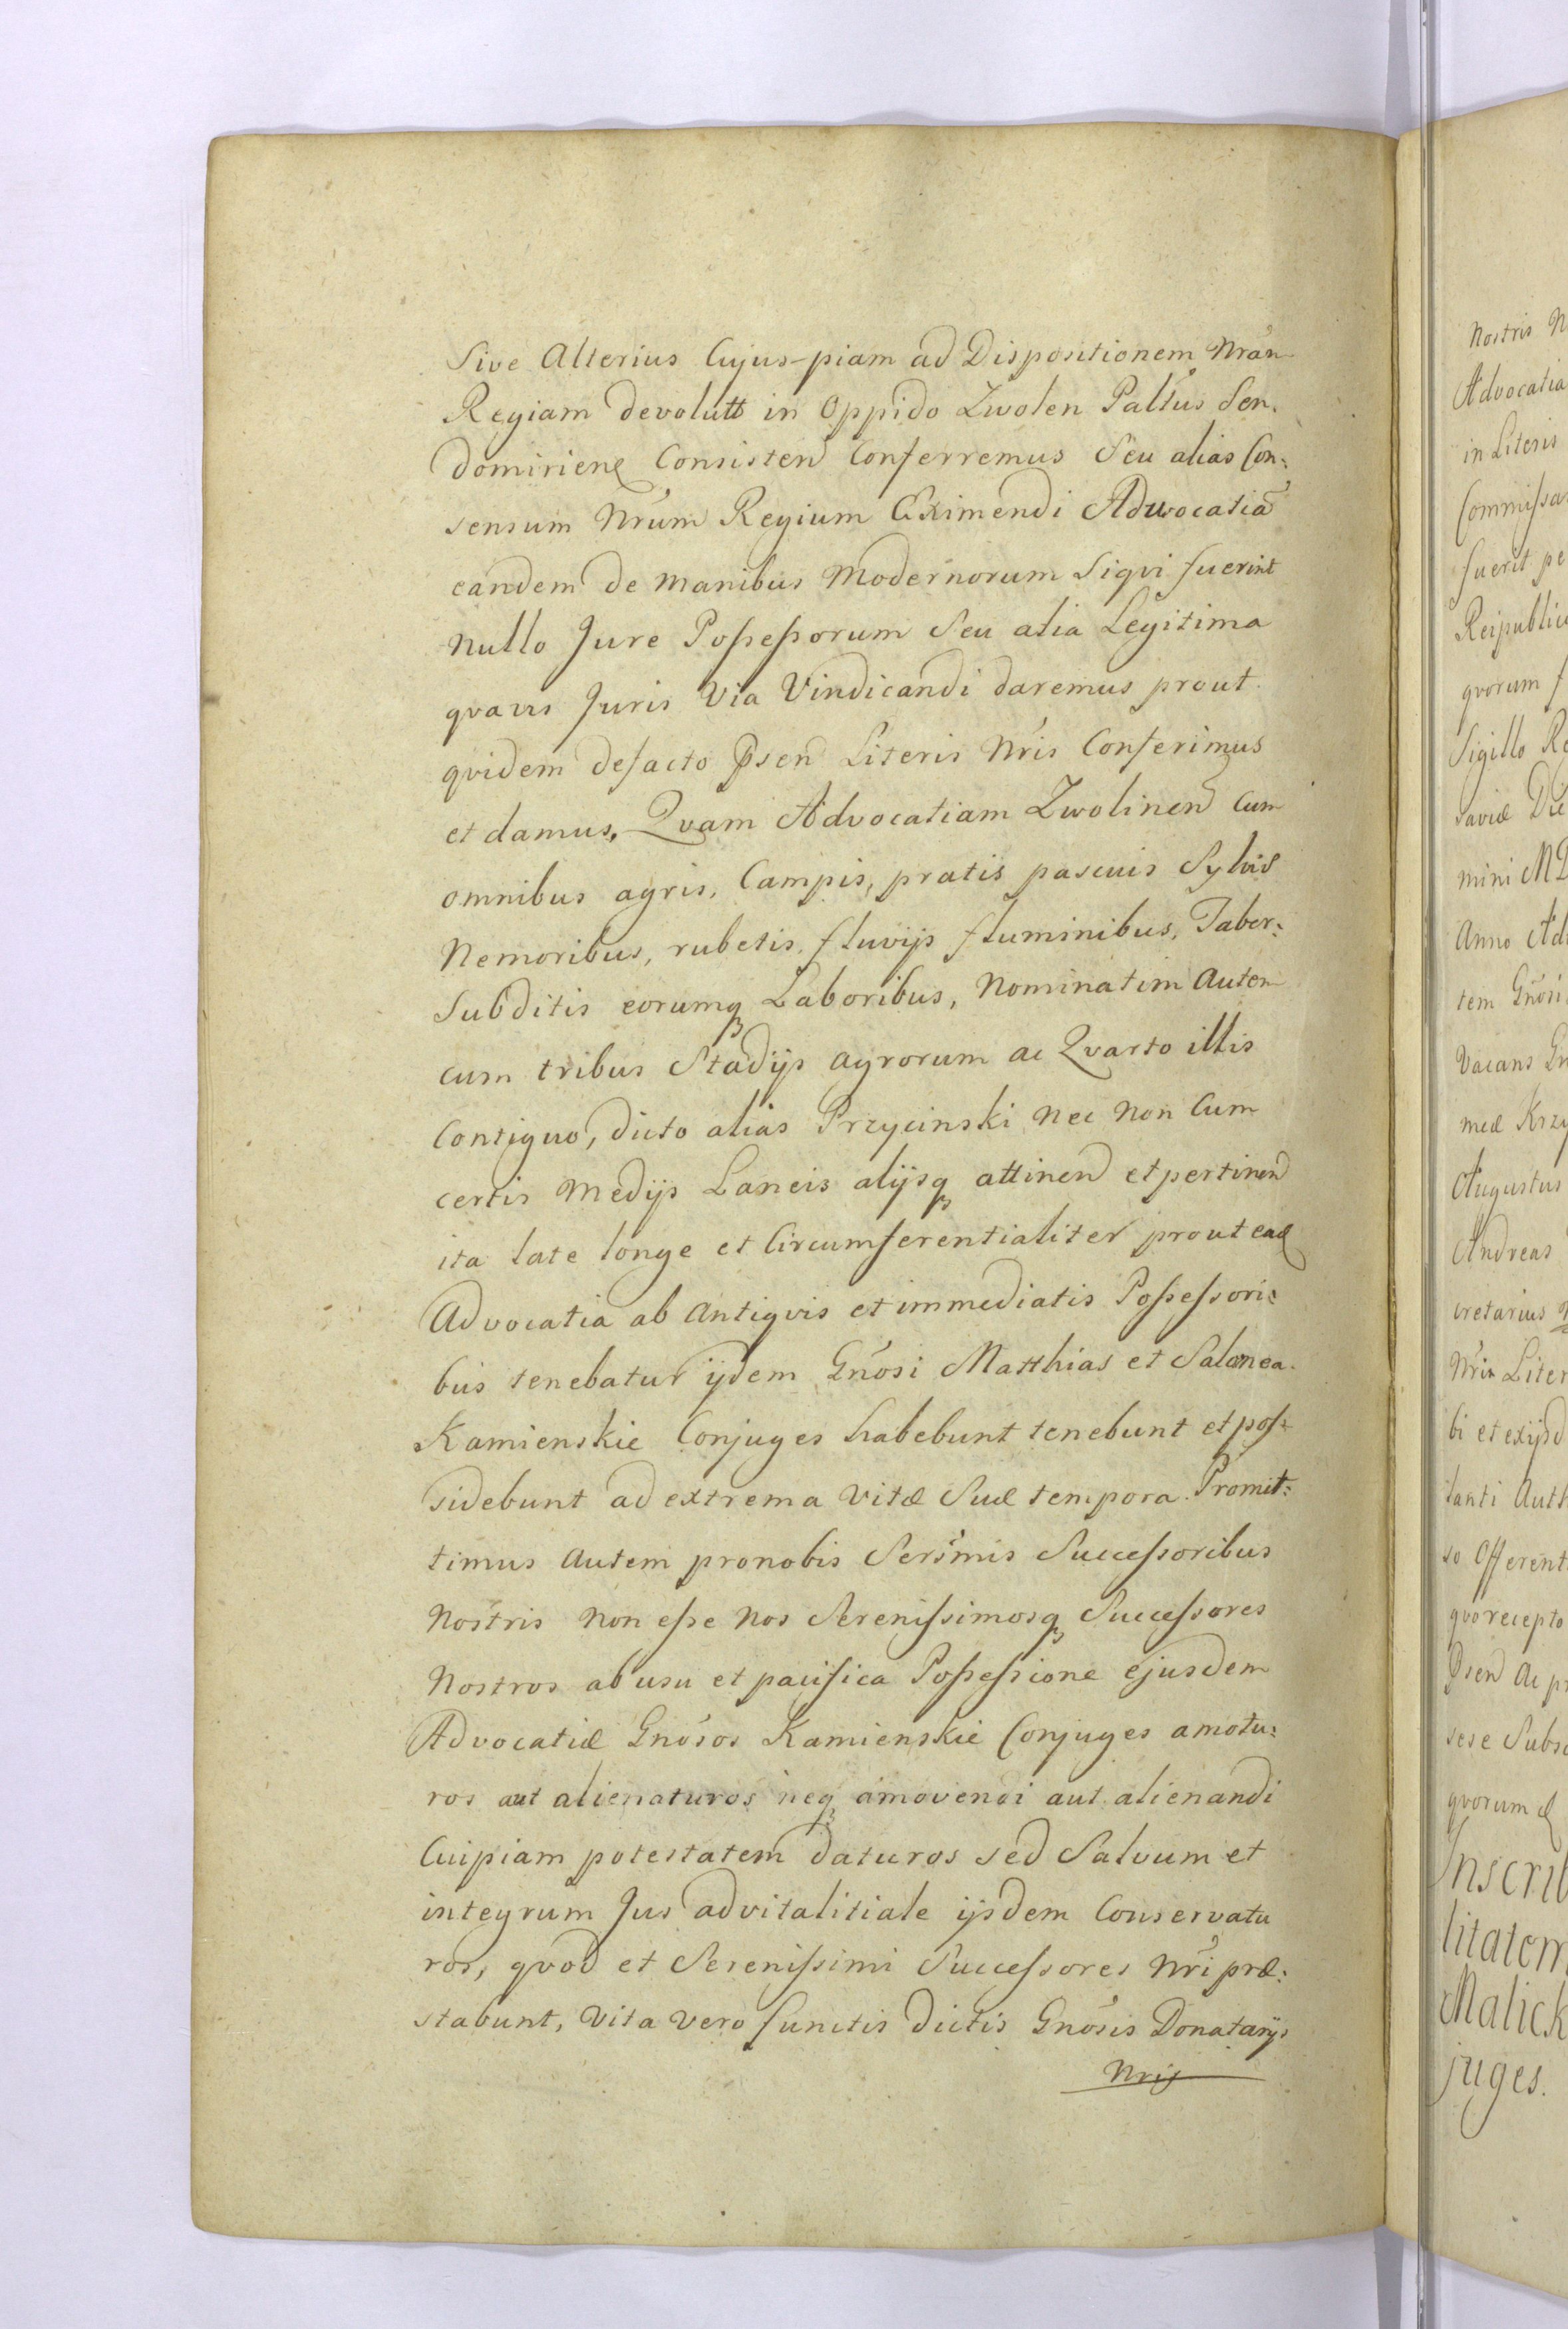 Sive Alterius Cujus-piam ad Dispositionem Nrãm
Regiam devolutt in Oppido Zwolen Paltũs Sen:
domiriens Consisten Conferremus Seu alias Con:
sensum Nrũm Regium Eximendi Advocatiã
eandem de manibus Modernorum Siqvi fuerint
nullo Jure Poßeßorum Seu alia Legitima
qvavis Juris Via Vindicandi daremus prout
qvidem defacto Psen Literis Nris Conferimus
et damus, Qvam Advocatiam Zwolinen cum
omnibus agris, Campis, pratis pascuis Sylvis
Nemoribus, rubetis, fluvijs fluminibus, Taber:
Subditis eorumq Laboribus, Nominatim Autem
cum tribus Stadijs Agrorum ac Qvarto illis
Contiguo, dicto alias Przycinski nec non Cum
certis Medijs Laneis alijsq attinen et pertinen
ita late longe et Circumferentialiter prout ead
Advocatia ab Antiqvis et immediatis Poßeßori:
bus tenebatur ijdem Gnosi Matthias et Salomea
Kamienskie Conjuges habebunt tenebunt et pos:
sidebunt ad extrema Vitæ Suæ tempora. Promit:
timus Autem pro nobis Sersmis Succeßoribus
Nostris Non eße Nos Serenißimosq Succeßores
Nostros ab usu et pacifica Poßeßione ejusdem
Advocatiæ Gnosos Kamienskie Conjuges amotu:
ros aut alienaturos neq amovendi aut alienandi
Cuipiam potestatem daturos sed Salvum et
integrum Jus advitalitiale ijsdem Conservatu
ros, qvod et Sereniſsimi Succeſsores Nri præ:
stabunt, Vita vero functis dictis Gnosis Donatarijs
Nris
Nostris
Advocatia
in Literis
Commißa
fuerit pe
Reipublic
qvorum f
Sigillo Re
saviæ Die
mini MD
Anno
tem Gnosi
Vacans
meæ Krzy
Augustus
Andreas
cretarius
Nris Liter
bi et exijsd
tanti Auth
so Offerent
qvo recepto
Psen Ac pr
sese Subsc
qvorum
Inscrib
litatem
Malick
juges.